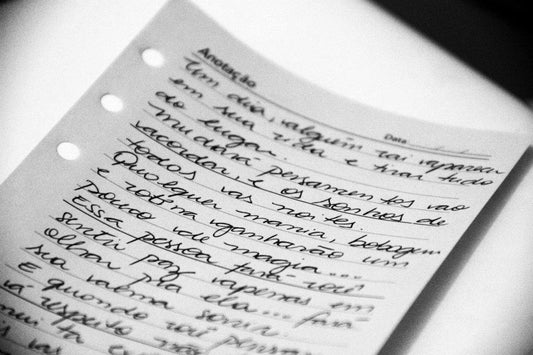 Anotação
Data
Um dia, alguém vai aparecer
em sua vida e tirar tudo
do lugar.
mudará pensamentos ao
acordar, e os sonhos de
todos as noites.
Qualquer mania, bobagem
e rotina ganharão um
pouco de magia...
Essa pessoa fará você
sentir paz apenas em
olhar pra ela... fará
sua alma sorrir.
E quando você pensar